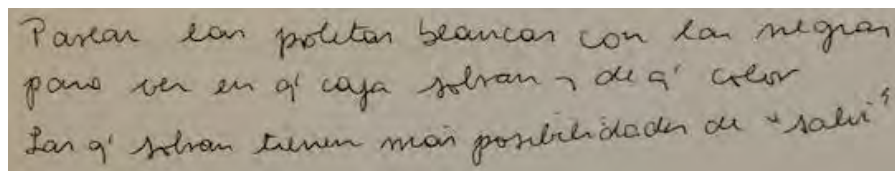 Parear las pelotas blancas con las negras
para ver en q' caja sobran y de q' color
Las q' sobran tienen más posibilidades de "salir"